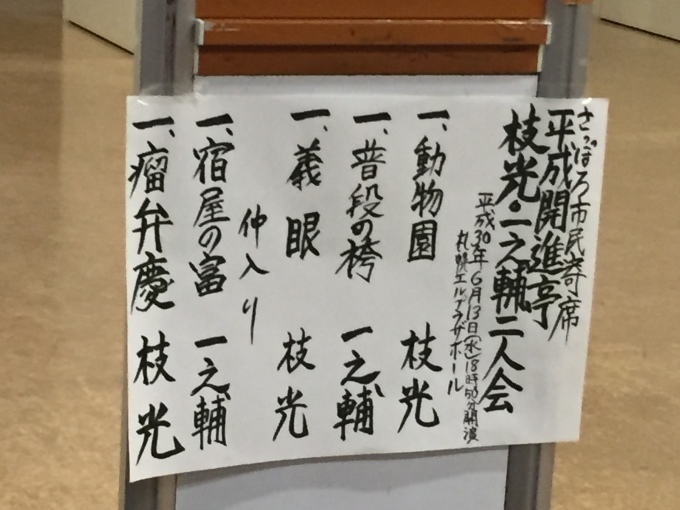 さっぽろ市民寄席
平成開進亭
枝光・一之輔二人会
平成30年6月13日(水)18時50分開演
札幌エルプラザホール
一、動物園 枝光
一、普段の袴 一之輔
一、義眼 枝光
仲入り
一、宿屋の富 一之輔
一、瘤弁慶 枝光